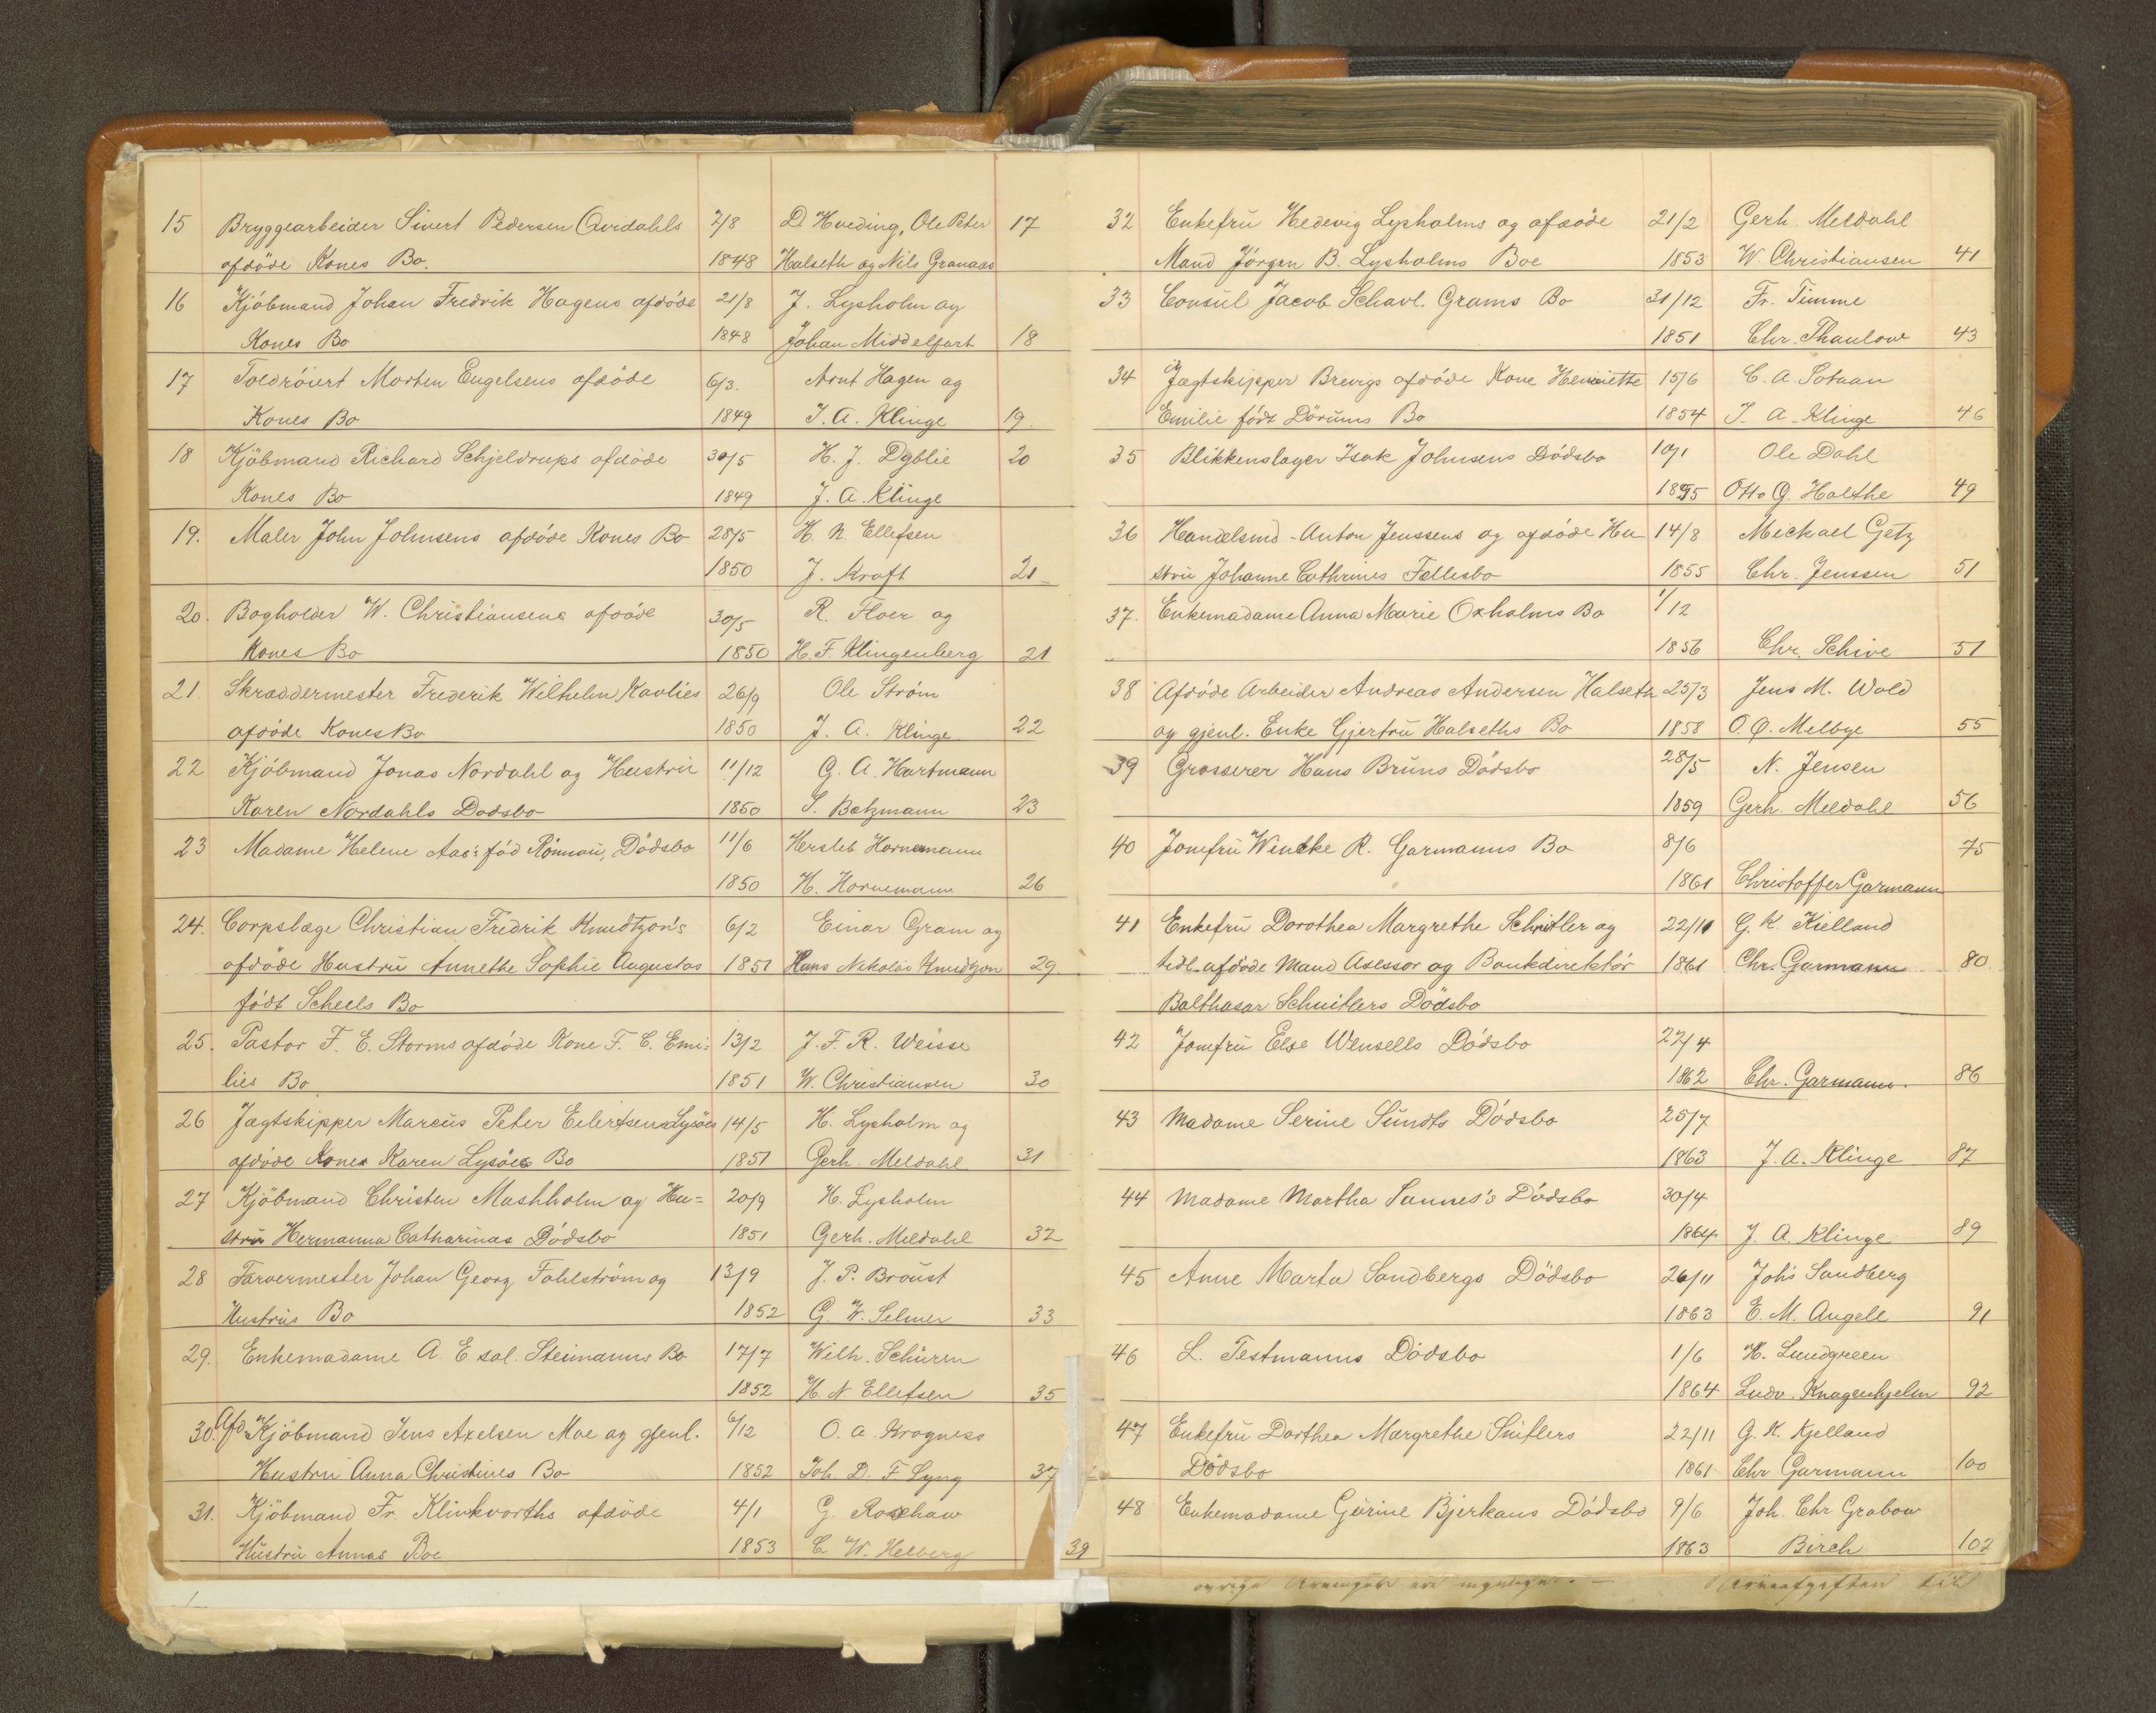 15 Bryggearbeider Sivert Pedersen Qvidahls 2/8 D. Hveding, Ole Peter 17
afdöde Kones Bo. 1848 Halseth og Nils Granaas
16 Kjöbmand Johan Fredrik Hagens afdöde 21/8 J. Lysholm og
Kones Bo 1848 Johan Middelfart 18
17 Toldröiert Morten Engelsens afdöde 6/3. Arnt Hagen og
Kones Bo 1849 J. A. Klinge 19.
18 Kjöbmand Richard Schjeldrups afdöde 30/5 H. J. Dyblie 20
Kones Bo 1849 J. A. Klinge
19. Maler John Johnsens afdöde Kones Bo 28/5 H. N. Ellefsen
1850 J. Kraft 21
20. Bogholder W. Christiansens afdöde 30/5 R. Floer og
Kones Bo 1850 H. F. Klingenberg 21
21. Skræddermester Frederik Wilhelm Kavlies 26/9 Ole Ström
afdöde Kones Bo 1850 J. A. Klinge 22
22 Kjöbmand Jonas Nordahl og Hustrü 11/12 G. A. Hartmann
Karen Nordahls Dodsbo 1850 S. Betzmann 23
23 Madame Helene Aas's föd Rönnau, Dödsbo 11/6 Hersleb Hornemann
1850 H. Hornemann 26
24. Corpslæge Christian Fredrik Knudtzon's 6/2 Einar Gram og
afdöde Hustrü Annethe Sophie Augustas 1851 Hans Nikolai Knudtzon 29
födt Scheels Bo
25. Pastor F. E. Storms afdöde Kone F. C. Emi= 13/2 J. F. R. Weisse
lies Bo 1851 W. Christiansen 30
26 Jægtskipper Marcus Peter Eilertsens Lysöes 14/5 H. Lysholm og
afdöde Kones Karen Lysöes Bo 1851 Gerh. Meldahl 31
27 Kjöbmand Christen Mashholm og Hu= 20/9 H. Lysholm
strü Hermanna Catharinas Dödsbo 1851 Gerh. Meldahl 32
28 Farvermester Johan Georg Fahlström og 13/9 J. P. Broust
Hustrüs Bo 1852 G. W. Selmer 33
29. Enkemadame A. E. sal. Steimanns Bo 17/7 Wilh. Schüren
1852 H N Ellefsen 35
30. Afd. Kjöbmand Jens Axelsen Moe og gjenl. 6/12 O. A. Krogness
Hustrü Anna Christines Bo 1852 Joh. D. F Lyng 37
31. Kjöbmand Fr. Klinkvorths afdöde 4/1 G. Roschaw
Hüstrü Annas Boe 1853 C. W. Helberg 39
32 Enkefrü Hedevig Lysholms og afdöde 21/2 Gerh. Meldahl
Mand Jörgen B. Lysholms Boe 1853 W. Christiansen 41
33 Consül Jacob Schavl. Grams Bo 31/12 Fr. Timme
1851 Chr. Thaulow 43
34 Jægtskipper Brevigs afdöde Kone Henriette 15/6 C. A. Sotaan
Emilie födt Dörums Bo 1854 J. A. Klinge 46
35 Blikkenslager Isak Johnsens Dödsbo 10/1 Ole Dahl
1855 Otto G. Halthe 49
36 Handelsmd. Anton Jenssens og afdöde Hu 14/8 Michael Getz
strü Johanne Cathrines Fellesbo 1855 Chr. Jenssen 51
37. Enkemadame Anna Marie Oxholms Bo 1/12
1856 Chr. Schive 51
38 Afdöde Arbeider Andreas Andersen Halseth 25/3 Jens M. Wold
og gjenl. Enke Gjertrü Halseths Bo 1858 O. Q. Melbye 55
39 Grosserer Hans Brüns Dödsbo 28/5 N. Jensen
1859 Gerh. Meldahl 56
40 Jomfrü Wencke R. Garmanns Bo 8/6 75
1861 Christoffer Garmann
41 Enkefrü Dorothea Margrethe Schnitler og 22/11 G. K. Kielland
tidl. afdöde Mand Asessor og Bankdirektör 1861 Chr. Garmann 80
Balthasar Schnitlers Dödsbo
42 Jomfrü Else Wensells Dödsbo 22/4
1862 Chr. Garmann. 86
43 Madame Serine Sündts Dödsbo 25/7
1863 J. A. Klinge 87
44 Madame Martha Sannes's Dödsbo 30/4
1864 J. A. Klinge 89
45 Anne Marta Sandbergs Dödsbo 26/11 Johs Sandberg
1863 E. M. Angell 91
46 L. Testmanns Dödsbo 1/6 H. Lundgreen
1864 Ludv. Knagenhjelm 92
47 Enkefrü Dorthea Margrethe Snitlers 22/11 G. K. Kjelland
Dödsbo 1861 Chr Garmann 100
48 Enkemadame Gürine Bjerkans Dödsbo 9/6 Joh. Chr Grabow
1863 Birch 102